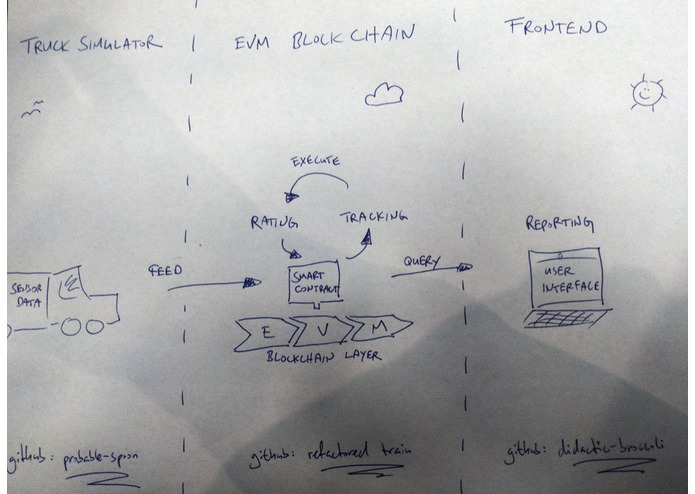 TRUCK SIMULATOR
EVM BLOCKCHAIN
FRONTEND
EXECUTE
RATING
TRACKING
REPORTING
FEED
SENSOR
DATA
SMART
CONTRACT
QUERY
USER
INTERFACE
E V M
BLOCKCHAIN LAYER
github: probable-spoon
github: refactored train
github: didactic-broccoli